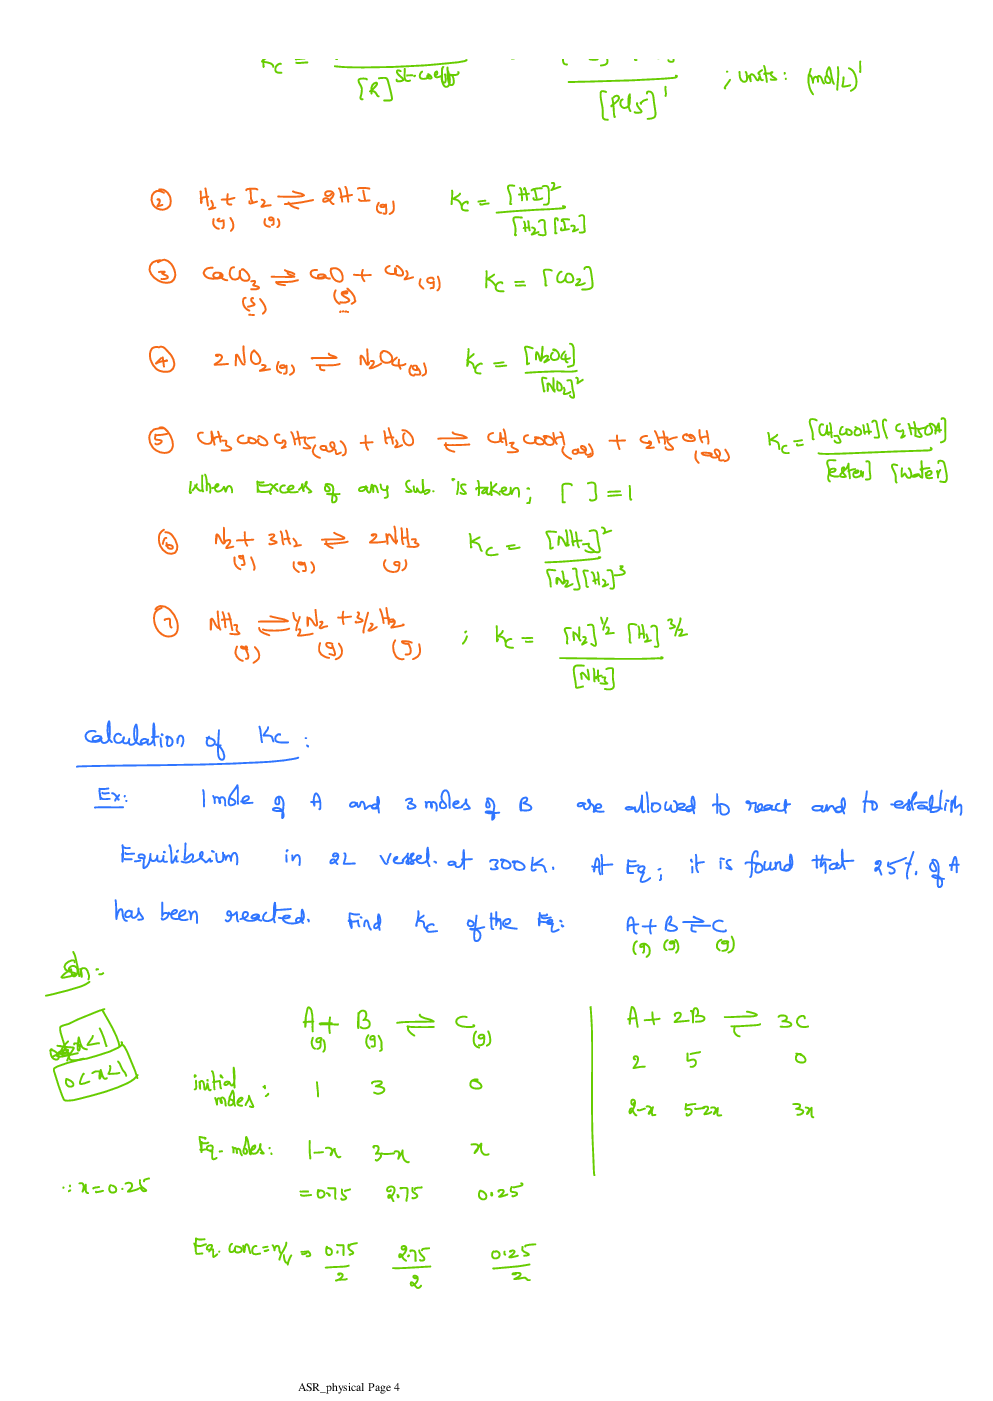 Kc = [R]^St-coeff [PCl5]^1 ; units: (mol/L)^1
② H2 + I2 ⇌ 2HI(g) Kc = [HI]^2 / [H2][I2]
(g) (g)
③ CaCO3 ⇌ CaO + CO2(g) Kc = [CO2]
(s) (s)
④ 2NO2(g) ⇌ N2O4(g) Kc = [N2O4] / [NO2]^2
⑤ CH3COOC2H5(aq) + H2O ⇌ CH3COOH(aq) + C2H5OH(aq) Kc = [CH3COOH][C2H5OH] / [ester][water]
When Excess of any Sub. is taken; [ ] = 1
⑥ N2 + 3H2 ⇌ 2NH3 Kc = [NH3]^2 / [N2][H2]^3
(g) (g) (g)
⑦ NH3 ⇌ 1/2 N2 + 3/2 H2 ; Kc = [N2]^1/2 [H2]^3/2 / [NH3]
(g) (g) (g)
Calculation of Kc :
Ex: 1 mole of A and 3 moles of B are allowed to react and to establish
Equilibrium in 2L vessel. at 300K. At Eq; it is found that 25% of A
has been reacted. Find Kc of the Eq: A + B ⇌ C
(g) (g) (g)
Soln:
A + B ⇌ C A + 2B ⇌ 3C
(g) (g) (g)
x<1
0<x<1
initial moles : 1 3 0 2 5 0
2-x 5-2x 3x
Eq. moles: 1-x 3-x x
∵ x = 0.25 = 0.75 2.75 0.25
Eq. conc = n/V ⇒ 0.75/2 2.75/2 0.25/2
ASR_physical Page 4